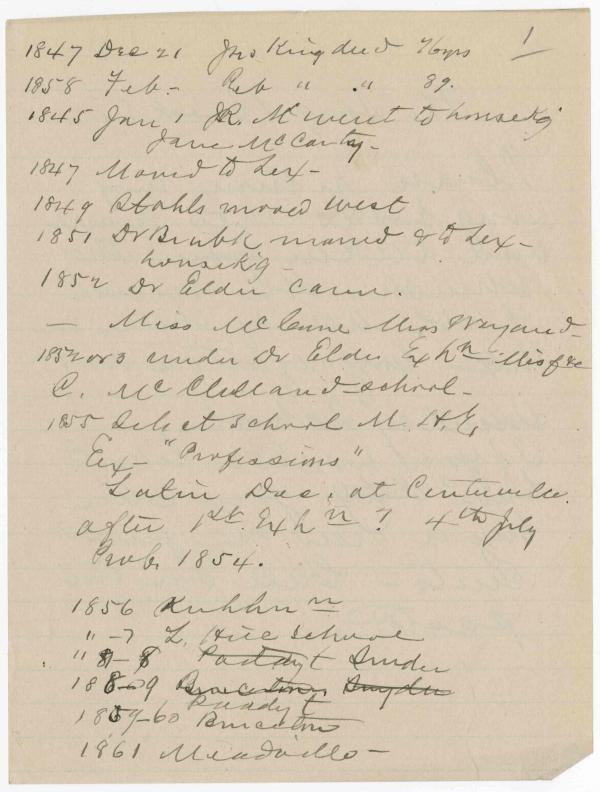 1
1847 Dec 21 Jno King died 76 yrs
1858 Feb - Reb " " 89.
1845 Jan 1 J.R. Mc went to housekg
Jane McCarty -
1847 Moved to Lex -
1849 Stahls moved West
1851 Dr moved & to Lex -
housekg -
1852 Dr Elder came.
- Miss McCune Miss Weyand -
1852 or 3 under Dr Elder Exhn Mis &c
C. McClelland - school -
1855 Select School M. H. E,
Ex - "Professions"
Latin at Centerville.
after 1st. Exhn ? 4th July
Prob. 1854.
1856 Kuhhn
" -7 L. Hill School
" 8 - 8 Snider
1859 Snyder
1859-60
1861 Meadville -